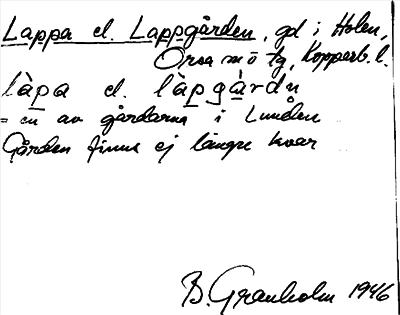 Lappa el. Lappgården, gd i Holen,
Orsa mö tg, Kopperb. l.
làpa el. làpgàrdn̥
= en av gårdarna i Lunden
Gården finns ej längre kvar
B. Granholm 1946